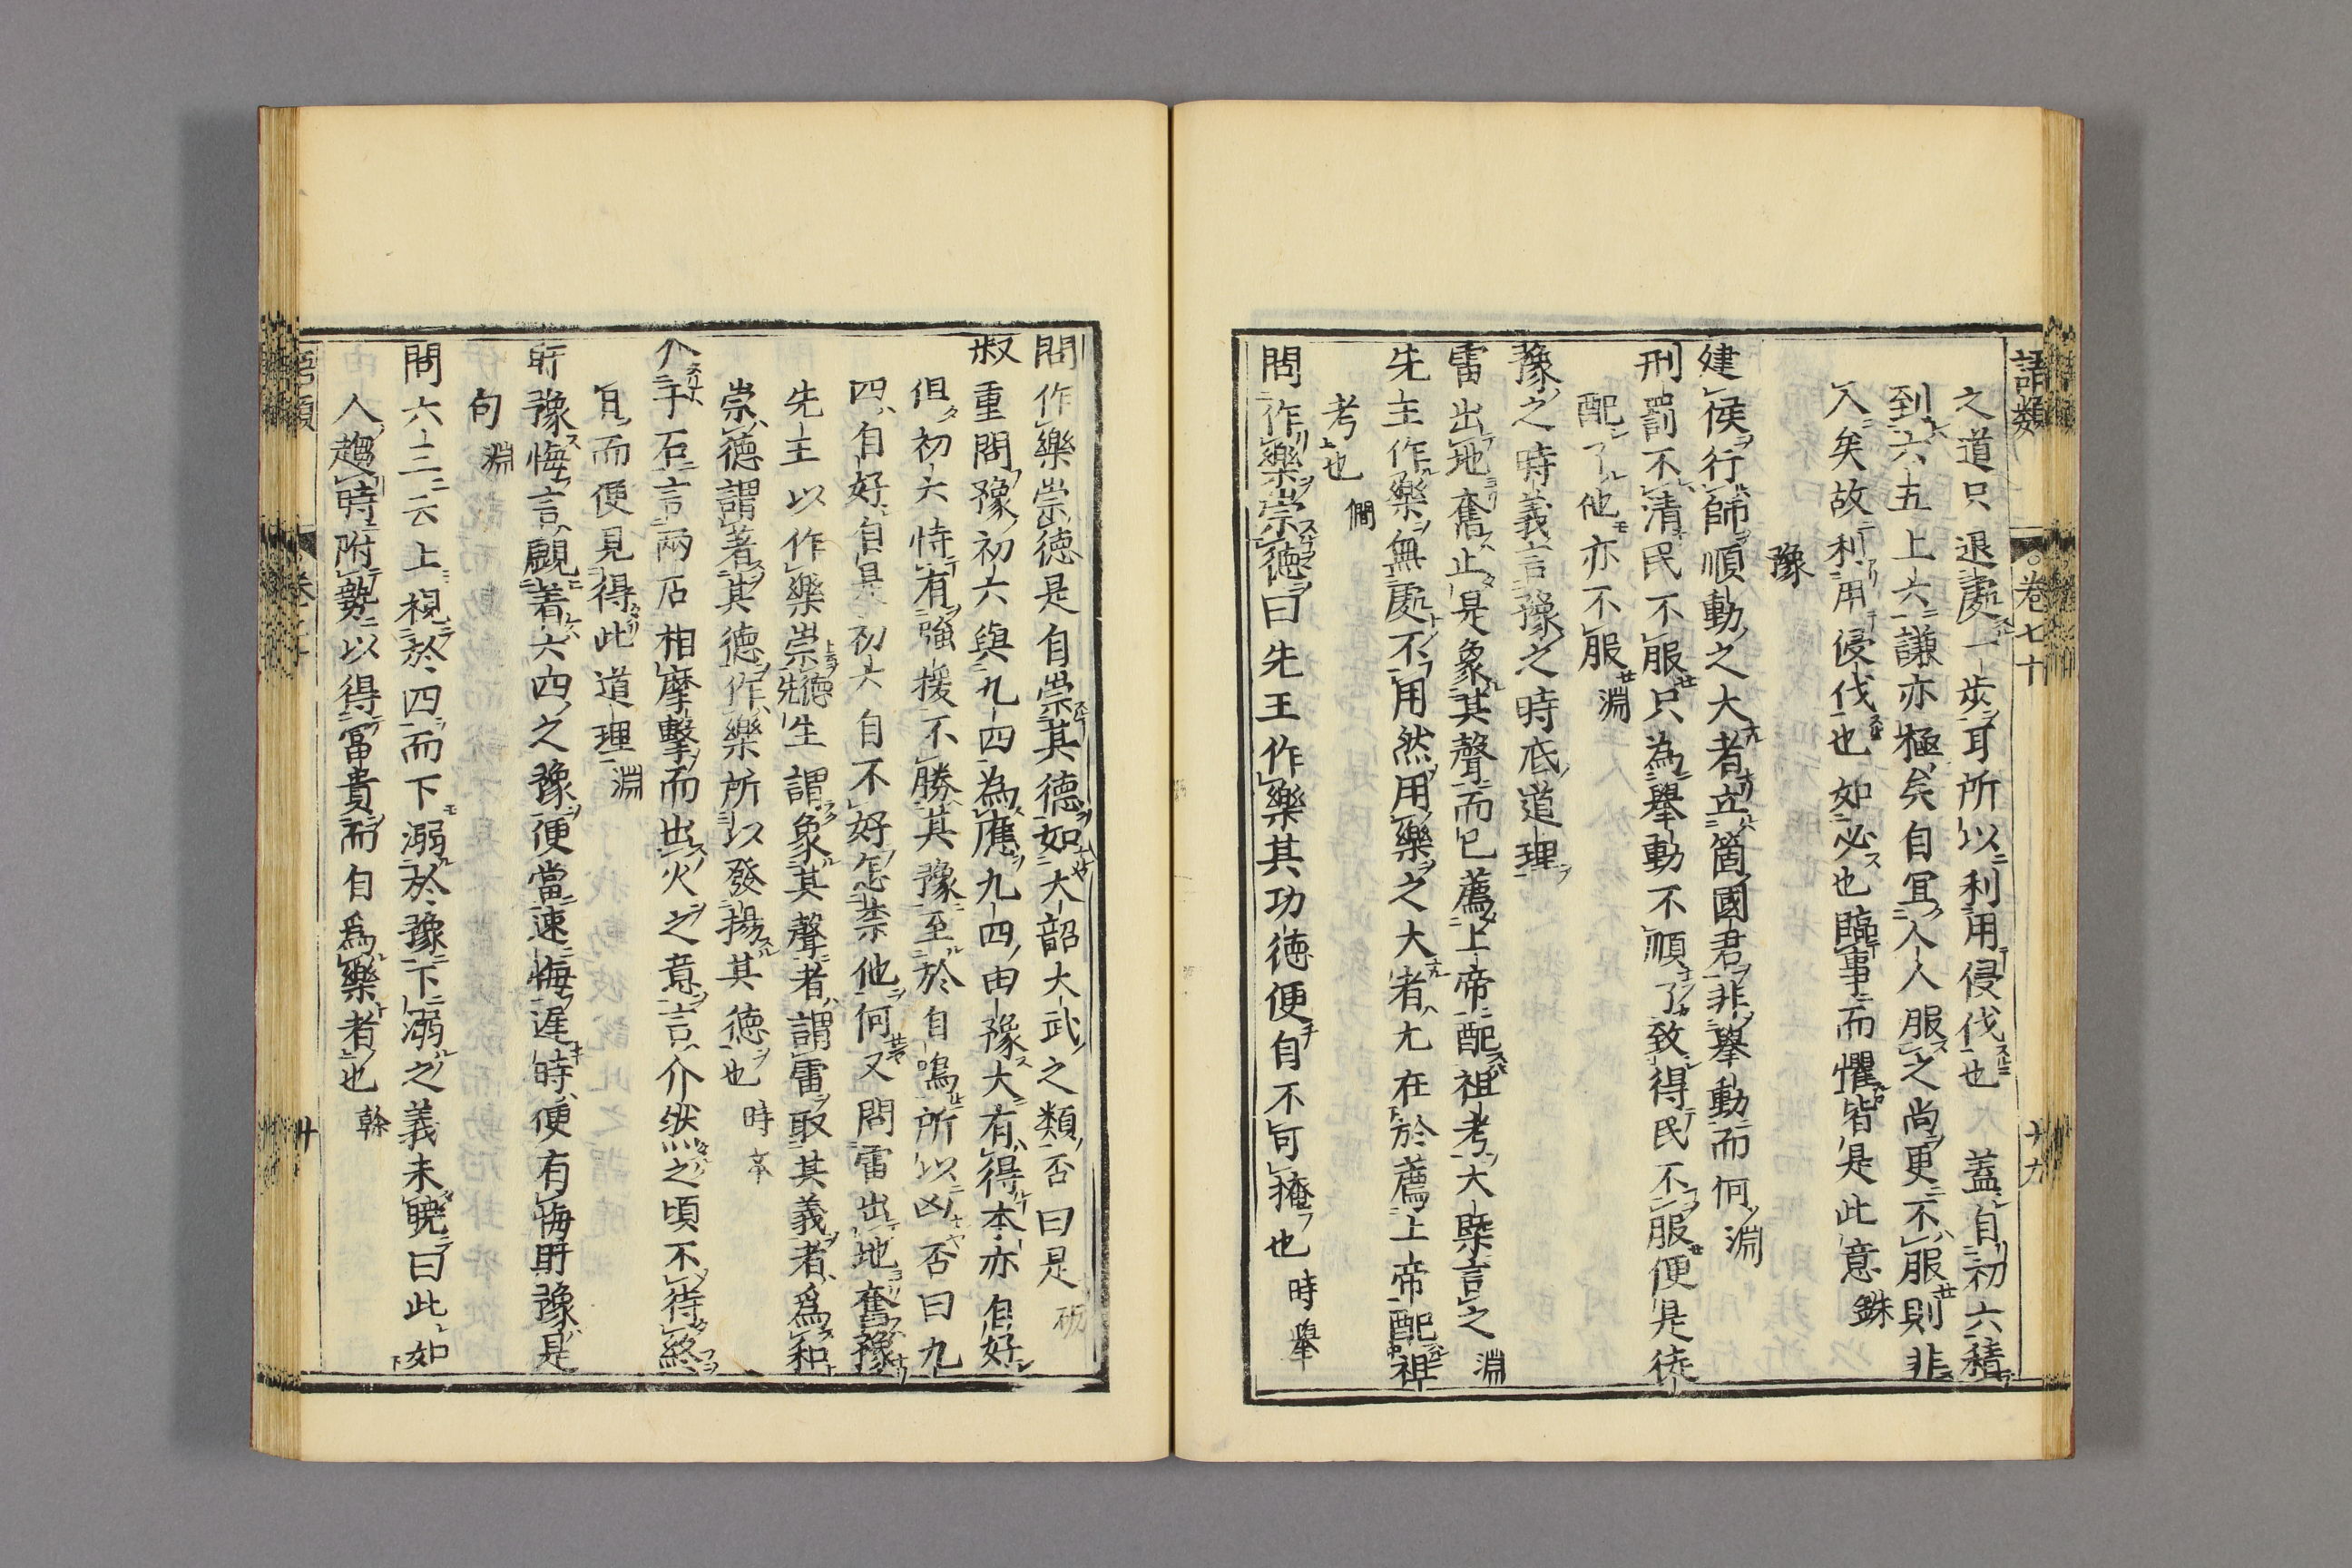 語類 卷七十 十九
之道只退處一步耳所以利用侵伐也蓋自初六積
到六五上六謙亦極矣自冝人人服之尚更不服則非
人矣故利用侵伐也如必也臨事而懼皆是此意銖
豫
建侯行師順動之大者立箇國君非舉動而何淵
刑罰不清民不服只為舉動不順了致得民不服便是徒
配了他亦不服淵
豫之時義言豫之時底道理
雷出地奮止是象其聲而已薦上帝配祖考大槩言之淵
先王作樂無處不用然用樂之大者尤在於薦上帝配祖
考也僩
問作樂崇德曰先王作樂其功德便自不可掩也時舉
問作樂崇德是自崇其德如大韶大武之類否曰是砺
叔重問豫初六與九四為應九四由豫大有得本亦自好
但初六恃有強援不勝其豫至於自鳴所以凶否曰九
四自好自是初六自不好怎柰他何又問雷出地奮豫
先王以作樂崇德先生謂象其聲者謂雷取其義者爲和
崇德謂著其德作樂所以發揚其德也時舉
介于石言兩石相摩擊而出火之意言介然之頃不待終
日而便見得此道理淵
盱豫悔言觀着六四之豫便當速悔遲時便有悔盱豫是
句淵
問六三云上視於四而下溺於豫下溺之義未曉曰此如
人趨時附勢以得冨貴而自爲樂者也榦
語類 卷七十 廿